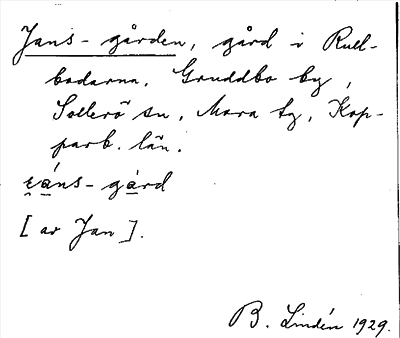 Jans-gården, gård i Rull-
bodarna, Gruddbo by,
Sollerö sn, Mora tg, Kop-
parb. län.
-gård
[av Jan].
B. Lindén 1929.